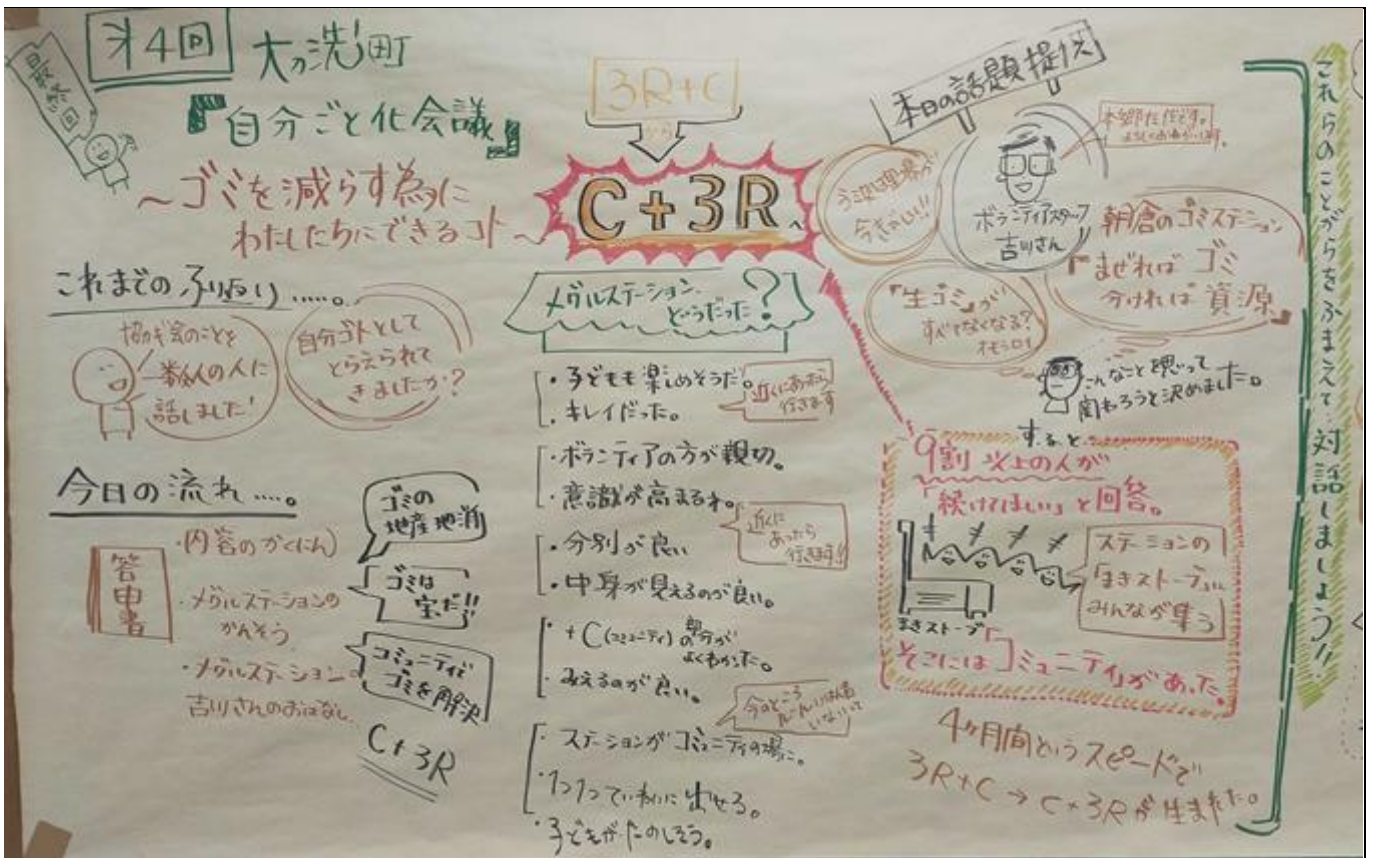 最終回
第4回 大刀洗町
『自分ごと化会議』
～ゴミを減らす為に
わたしたちにできるコト～
これまでのふり返り……。
協議会のことを
話しました!
自分ゴトとして
とらえられて
きましたか?
今日の流れ……。
答申書
・内容のかくにん
・メグルステーションの
かんそう
・メグルステーション
吉川さんのおはなし
ゴミの
地産地消
ゴミは
宝だ!!
コミュニティで
ゴミを解決
C+3R
3R+C
から
C+3Rへ
メグルステーション
どうだった?
・子どもも楽しめそうだ。
・キレイだった。
近くにあったら
行きます
・ボランティアの方が親切。
・意識が高まるネ。
近くに
あったら
行きます!!
・分別が良い
・中身が見えるのが良い。
・+C(コミュニティ)の部分が
よくわかった。
・みえるのが良い。
今のところ
・ステーションがコミュニティの場に。
・1つ1つていねいに出せる。
・子どもがたのしそう。
本日の話題提供
ボランティアスタッフ
吉川さん
今きびしい!!
『生ゴミ』が
すべてなくなる?
オモシロイ
朝倉のゴミステーション
『まぜればゴミ
分ければ資源』
こんなことを思って
関わろうと決めました。
すると…
9割以上の人が
「続けてほしい」と回答。
まきストーブ
ステーションの
「まきストーブ」に
みんなが集う
そこには「コミュニティ」があった。
4ヶ月間というスピードで
3R+C→C+3Rが生まれた。
これらのことがらをふまえて…対話しましょう!!